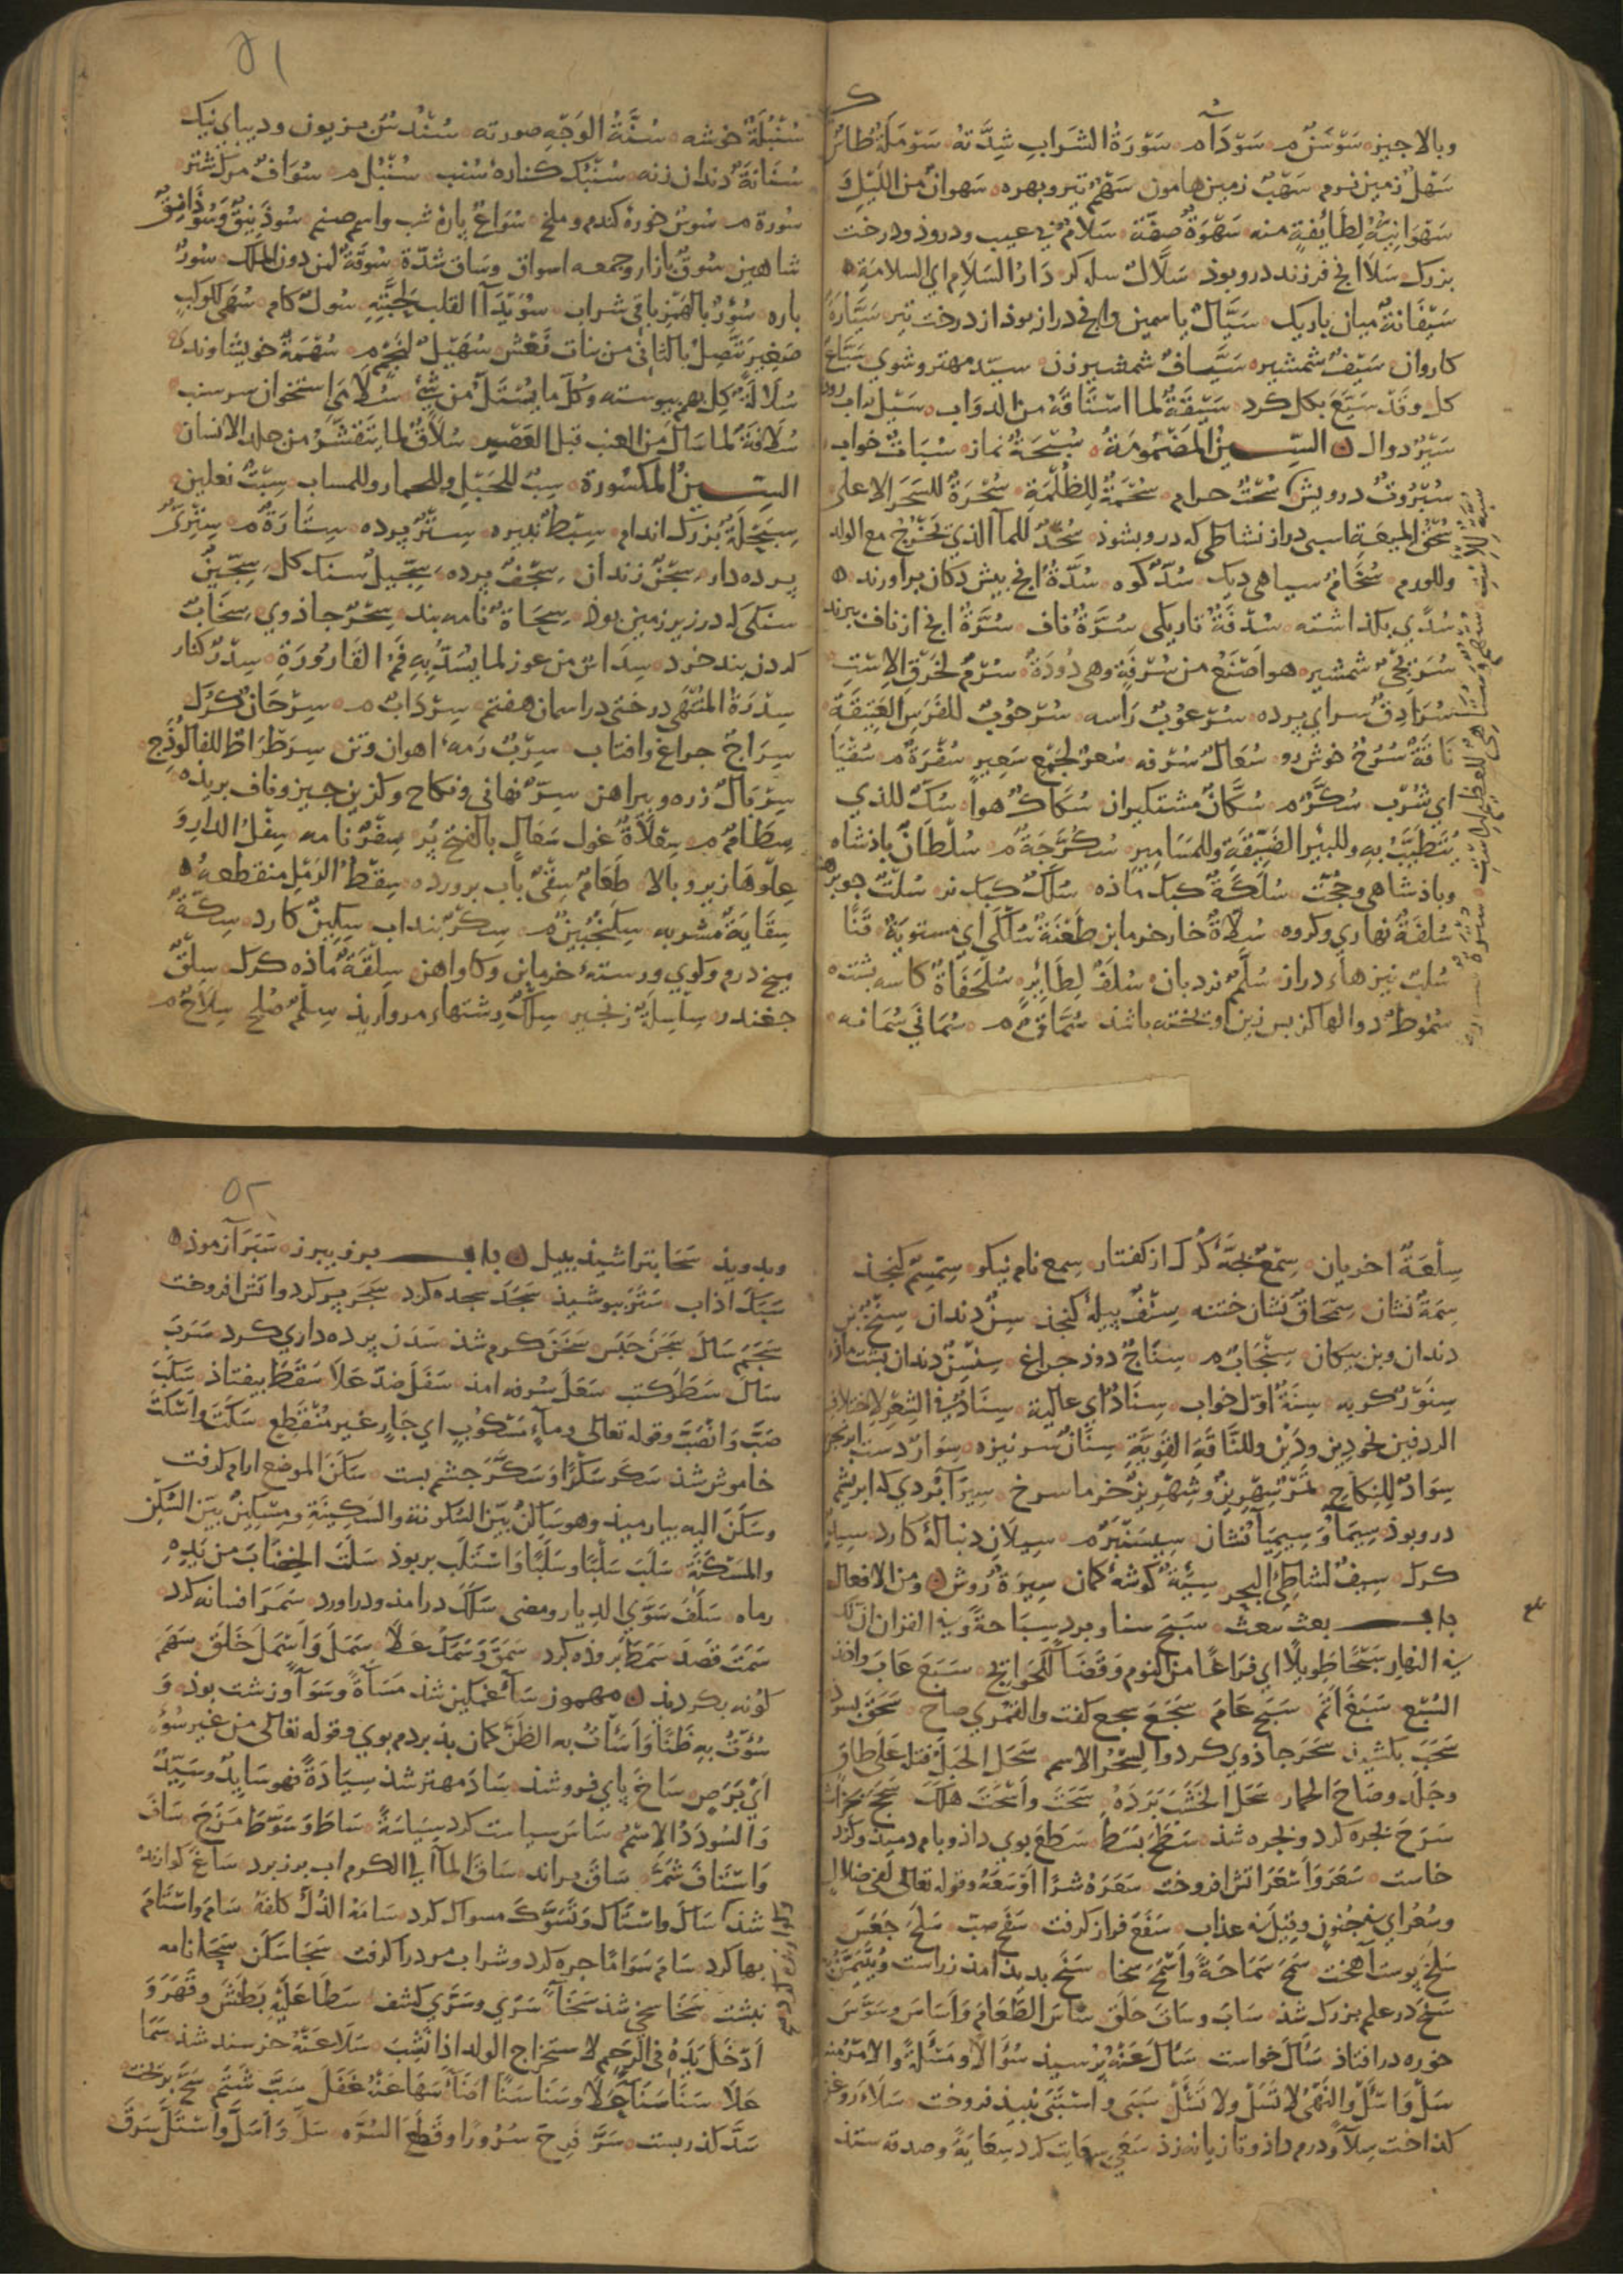 وبالاجیز سَوْسَنٌ م سَوْدَآ م سَوْرَةُ الشَرابِ شِدَّتهُ سَوْمَلَةٌ طُائر
سَهْلٌ زمین نرم سَهْبٌ زمین هامون سَهْمٌ تیر و بهره سَهوانٌ من اللَیْلِ وَ
سَهْوَانِیَّةٌ لِطَایُفةٍ منه سَهْوَةٌ صفّة سَلامٌ بی عیب و درود و درخت
بزرک سَلَا انچ فرزند درو بوذ سَلَّالٌ سله کر دَارُ السَلَامِ ای السلامَةِ
سَیْفَانةٌ میان باریک سَیَّالٌ یاسمین وانچ دراز بوذ از درخت تیر سَیَّارَةٌ
کاروان سَیْفٌ شمشیر سَیَّافٌ شمشیرزن سیّد مهتر و شوی سَیَّاعٌ
کل وقَدْ سَیَّعَ بکل کرد سَیّقَةٌ لما اسْتَاقَهُ من الدوَاب سَیْل
سَیْرٌ دوال السّینُ المَضْمُومَةُ سُبْحَةٌ نماز سُبَاتٌ خواب
سُبْرُوتٌ درویش سُحْتٌ حرام سُحْمَةٌ لِلظُلْمَةِ سُحْرَةٌ للسَحَر الاعلی
وللورم سُخَامٌ سیاهی دیک سُدٌّ کوه سُدَّةٌ انچ پیش دکان برآورند
سُدًی بکذاشته سُدْفَةٌ تاریکی سُرَّةٌ ناف سُرَّةٌ انچ از ناف ببرند
سُرَیْجِیٌّ شمشیر هو اَصْنَعُ من سُرْفَةٍ وهی دُودَةٌ سُرْمٌ لخَرْقِ الاِسْتِ
سُرَادِقٌ سرای پرده سُرْعوُبٌ رَاسه سُرْحوُبٌ للفَرَسِ العَتِیقَةِ
نَاقَةٌ سُرُحٌ خوش رو سُعَالٌ سُرفه سُعرٌ لجَمْعِ سَعِیرٍ سُفْرَةٌ م سُقْیَا
ای شُرْب سُکَّرٌ م سُکَّانٌ مشتکیران سُکَاکٌ هوا سُکٌّ للذی
یُتَطَیَّبُ بِهِ وللبیْرِ الضَیِّقَةِ وللمَسَامِیرِ سُکُرَّجَةٌ م سُلْطَانٌ باذشاه
وباذشاهی وحُجّت سُلَکَةٌ کبک ماذه سُلَکٌ کبک نر سُلْتٌ جو برهنه
سُلفَةٌ نهاری وکروه سُلَّاةٌ خارخرمابن طَعْنَةٌ سُلْکَی ای مستویَةٌ قَنًا
سُلبٌ نیزهاء دراز سُلَّمٌ نردبان سُلَفٌ لِطَایِرٍ سُلَحْفَاةٌ کاسه پشت
سُمُوطٌ دوالها کز پس زین اوتخته باشذ سُمَّاقٌ م سُمَانَی سُمَانه
۵۱
سُنْبُلَةٌ خوشه سُنَّةُ الوَجْهِ صورته سُنْدُسٌ بزیون ودیبای نیک
سُنَانَةٌ دندان زنه سُنْبُکٌ کنارهٔ سُنب سُنْبُل م سُوَافٌ مرک شتر
سُورة م سُوسٌ خورهٔ کندم و ملخ سُوَاعٌ پارهٔ شب واسم صنم سُوذَنِیقٌ وَسُوذَانِقٌ
شاهین سُوقٌ بازار وجمعه اسواق وسَاق شدّة سُوقَةٌ لمن دون الملک سُورٌ
باره سُؤْرٌ بالهَمْزِ باقی شراب سُوَیْدَآ القلب لِحَبَّتِهِ سُولٌ کام سُهَی لکوکبٍ
صَغِیرٍ یَتَّصِلُ بالثانی من بنات نَعْش سُهَیْلٌ لنَجْمٍ م سُهْمَةٌ خویشاوندی
سُلَالَةٌ کِل بهم پیوسته وکُلّ ما یُسْتَلّ من شَیْءٍ سُلَامَی استخوان سر سنب
سُلَافَةٌ لما سَالَ مِنَ العنب قبل العَصْرِ سُلَاقٌ لما یَتَقَشَّرُ من جلد الانسان
السّینُ المکسُورة سِبٌّ للحَبْلِ وللحمار وللمساب سِبْتٌ نعلین
سِبَحْلَةٌ بُزرک اندام سِبْطٌ نبیره سِتْرٌ پرده سِتَارَةٌ م
پرده دار سِجْنٌ زندان سِجْفٌ پرده سِجِّیلٌ سنک کل سِجِّینٌ
سنکی که در زیر زمین بوذ سِحَاةٌ نامه بند سِحْرٌ جاذوی سِخَابٌ
کردن بند خرد سِدَادٌ من عوز لما یُسَدُّ بِهِ فَمُ القَارُورَةِ سِدْرٌ کنار
سِدْرَةُ المُنْتَهَی درختی در اسمان هفتم سِرْدَابٌ م سِرْحَانٌ کُرک
سِرَاجٌ چراغ وافتاب سِرْبٌ رَمهٔ اهوان وتن سِرَطْرَاطٌ للفالُوذَجِ
سِرْبَالٌ زره وپیراهن سِرٌّ نهانی ونکاح وکزین چیز وناف بریده
سِطَامٌ م سِعْلَاةٌ غول سِفْرٌ نامه سِفْلُ الدارِ وَ
عِلْوُهَا زیر وبالا طَعَامٌ سِقْیٌ بآب پرورده سِقْطُ الرَمْلِ منقطعهُ
سِقَایَةٌ مَشربه سِکَنْجُبِینٌ م سِکْرٌ بنداب سِکِّینٌ کارد سِکَّةٌ
میخ درم وکوی ورستهٔ خرمابن وکاواهن سِلْقَةٌ ماذه کرک سِلْقٌ
چغندر سِلْسِلَةٌ زنجیر سِلْکٌ رشتهاء مروارید سِلْمٌ صُلح سِلَاحٌ م
سِلْعَةٌ اخریان سِمْعٌ بچّهٔ کُرک از کفتار سِمع نام نیکو سِمْسِمٌ کنجذ
سِمَةٌ نشان سِمْحَاقٌ نشان ختنه سِنْفٌ پیلهٔ کنجذ سِنٌّ دندان سِنْخٌ بن
دندان وبن پیکان سِنْجَابٌ م سِنَاجٌ دوذ چراغ سِنْسِنٌ دندان پشت مازه
سِنَّوْرٌ کربه سِنَةٌ اوّل خواب سِنَادٌ ای عالیة سِنَادٌ فی الشِعْرِ لاختلاف
الردفین نحو دِین ودَیْن وللنَّاقَةِ القَوِیَّةِ سِنَانٌ سر نیزه سِوَارٌ دست ابرنجن
سِوَادٌ لِلنِکَاحِ تَمْرٌ سِهْرِیزٌ وشِهْرِیزٌ خرما سرخ سِیَرَآ بُردی که ابریشم
درو بوذ سِیمَآ وَسِیمِیَآ نشان سِیسَنْبَرٌ م سِیلَان دنبالهٔ کارد سِیدٌ
کرک سِیفٌ لشاطِئ البحر سِیَةٌ کوشهٔ کمان سِیرَةٌ رَوش ومن الافعال
باب بعث یبعث سَبَحَ سنا وبرد سِبَاحَةً وفی القران انّ لک
فی النهار سَبْحًا طَوِیلًا ای فرَاغًا من النوم وقَضَآً للحَوَایج سَبَعَ عابَ
السُبْع سَبَغَ اتَمَّ سَبَحَ عَامَ سَجَعَ سجع کفت والقمری صاح سَحَقَ بسوذ
سَحَبَ بکشیذ سَحَرَ جاذوی کرد والسِحْرُ الاسم سَحَلَ الحَبْلَ فتله عَلَی طَاقٍ
وجَلَد وصَاحَ الحمار سَحَلَ الخشَبَ بَرَدَهُ سَحَتَ واَسْحَتَ هلَکَ
سَرَحَ بچره کرد وبچره شذ سَطَحَ بَسَطَ سَطَعَ بوی داذ وبامداد دمید
خاست سَعَرَ وَاَسْعَرَ اتش افروخت سَعَرَهُ شَرًّا اَوْسَعَهُ وقوله تعالی لفی ضلالٍ
وسُعُرٍ ای فی جُنونٍ وقِیلَ فی عذاب سَفَعَ فراز کرفت سَفَحَ صبّ سَلَحَ جَعَسَ
سَلَخَ پوست اَهخت سَمَحَ سَمَاحَةً وَاَسْمَحَ سخا سَنَحَ بدید آمد ز راست
سَنَخَ در علم بزرک شذ سَابَ وسَاتَ خَلَقَ سَاسَ الطَعَامُ وَاَسَاسَ وسَوَّسَ
خوره در افتاذ سَأَلَ خواست سَأَلَ عَنْهُ بُرسیذ سُؤَالًا ومَسْئَلَةً والامرُ منه
سَلْ وَاسْئَلْ والنَهْیُ لاتَسَلْ ولا تَسْئَلْ سَبَی واسْتَبَی نبیذ فروخت سَلَاءَ
کداخت سِلَآً ودرم داذ وتازیانه زذ سَعَی سِعَایت کرد سِعَایَةً وصدقه ستذ
۵۲
وبدویذ سَحَا بتراشیذ ببیل باب برز یبرز سَبَرَ آزموذ
سَبَکَ اذاب سَتَرَ بپوشیذ سَجَدَ سجده کرد سَجَرَ پر کرد واتش افروخت
سَجَمَ سَالَ سَجَنَ حَبَسَ سَخَنَ کرم شذ سَدَنَ پرده داری کرد سَرَبَ
سَالَ سَطَرَ کتب سَعَلَ سُرفه امذ سَفَلَ ضدّ عَلَا سَقَطَ بیفتاذ سَکَبَ
صَبَّ وَانْصَبَّ وقوله تعالی ومآءٍ مَسْکُوبٍ ای جَارٍ غیرِ مُنْقَطِعٍ سَکَتَ واَسْکَتَ
خاموش شذ سَکَرَ سَکْرًا وَسَکَّرَ چشم ببست سَکَنَ الموضع ارام کرفت
وسَکَنَ الیه بیارمیذ وهو سَاکِنٌ بیّن السُکونة والسَکِینَةِ ومِسْکِینٌ بیّن السُکْنِ
والمَسْکَنَةِ سَلَبَ سَلْبًا وسَلَبًا وَاسْتَلَبَ بربوذ سَلَتَ الخِضَابَ من یَدِهِ
رماه سَلَفَ سَوَّی الدیار ومضی سَلَکَ درامذ ودراورد سَمَرَ افسانه کرد
سَمَتَ قصَدَ سَمَطَ بروذه کرد سَمَقَ وَسَمَکَ عَلَا سَمَلَ وَاَسْمَلَ خَلَقَ سَهَمَ
کونه بکردیذ مهموز سَآءَ غمکین شذ مَسَآءَةً وسَوَآءً وزشت بوذ وَ
سُؤْتُ بِهِ ظَنًّا وَاَسَأْتُ به الظَنَّ کمان بد بردم بوی وقوله تعالی من غیر سُوْءٍ
اَیْ بَرَصٍ سَاخَ پای فرو شذ سَادَ مهتر شذ سِیَادَةً فهو سَایِدٌ وسَیِّدٌ
وَالسُودَدُ الاِسْمُ سَاسَ سیاست کرد سِیَاسَةً سَاطَ وَسَوَّطَ مَزَجَ سَافَ
وَاسْتَافَ شَمَّ سَاقَ براند سَاقَ المآءَ الی الکرم اب برز برد سَاغَ کوارنده
شذ سَاکَ واسْتَاکَ وتَسَوَّکَ مسواک کرد سَامَهُ الذُلَّ کلفهُ سَامَ واسْتَامَ
بها کرد سَامَ سَوَامًا چره کرد وشراب مر ورا کرفت سَجَا سَکَنَ سَحَا نامه
نبشت سَخَا سخی شذ سَخَآءً سَرَی وسَرَّی کشف سَطَا عَلَیْهِ بَطَشَ وقَهَرَ وَ
اَدْخَلَ یَدَهُ فی الرَحِمِ لاستخراج الولد اذا نَشِبَ سَلَا عَنْهُ خرسند شذ سَمَا
عَلَا سَنَا سَنَآءً عَلَا وسَنَا سَنًا اضَآءَ سَهَا عَنْهُ غَفَلَ سَبَّ شَتَمَ سَحَّ بریخت
سَدَّ کذر ببست سَرَّ فَرِحَ سُرُورًا وقَطَعَ السُرَّه سَلَّ وَاَسَلَّ وَاسْتَلَّ سَرَقَ